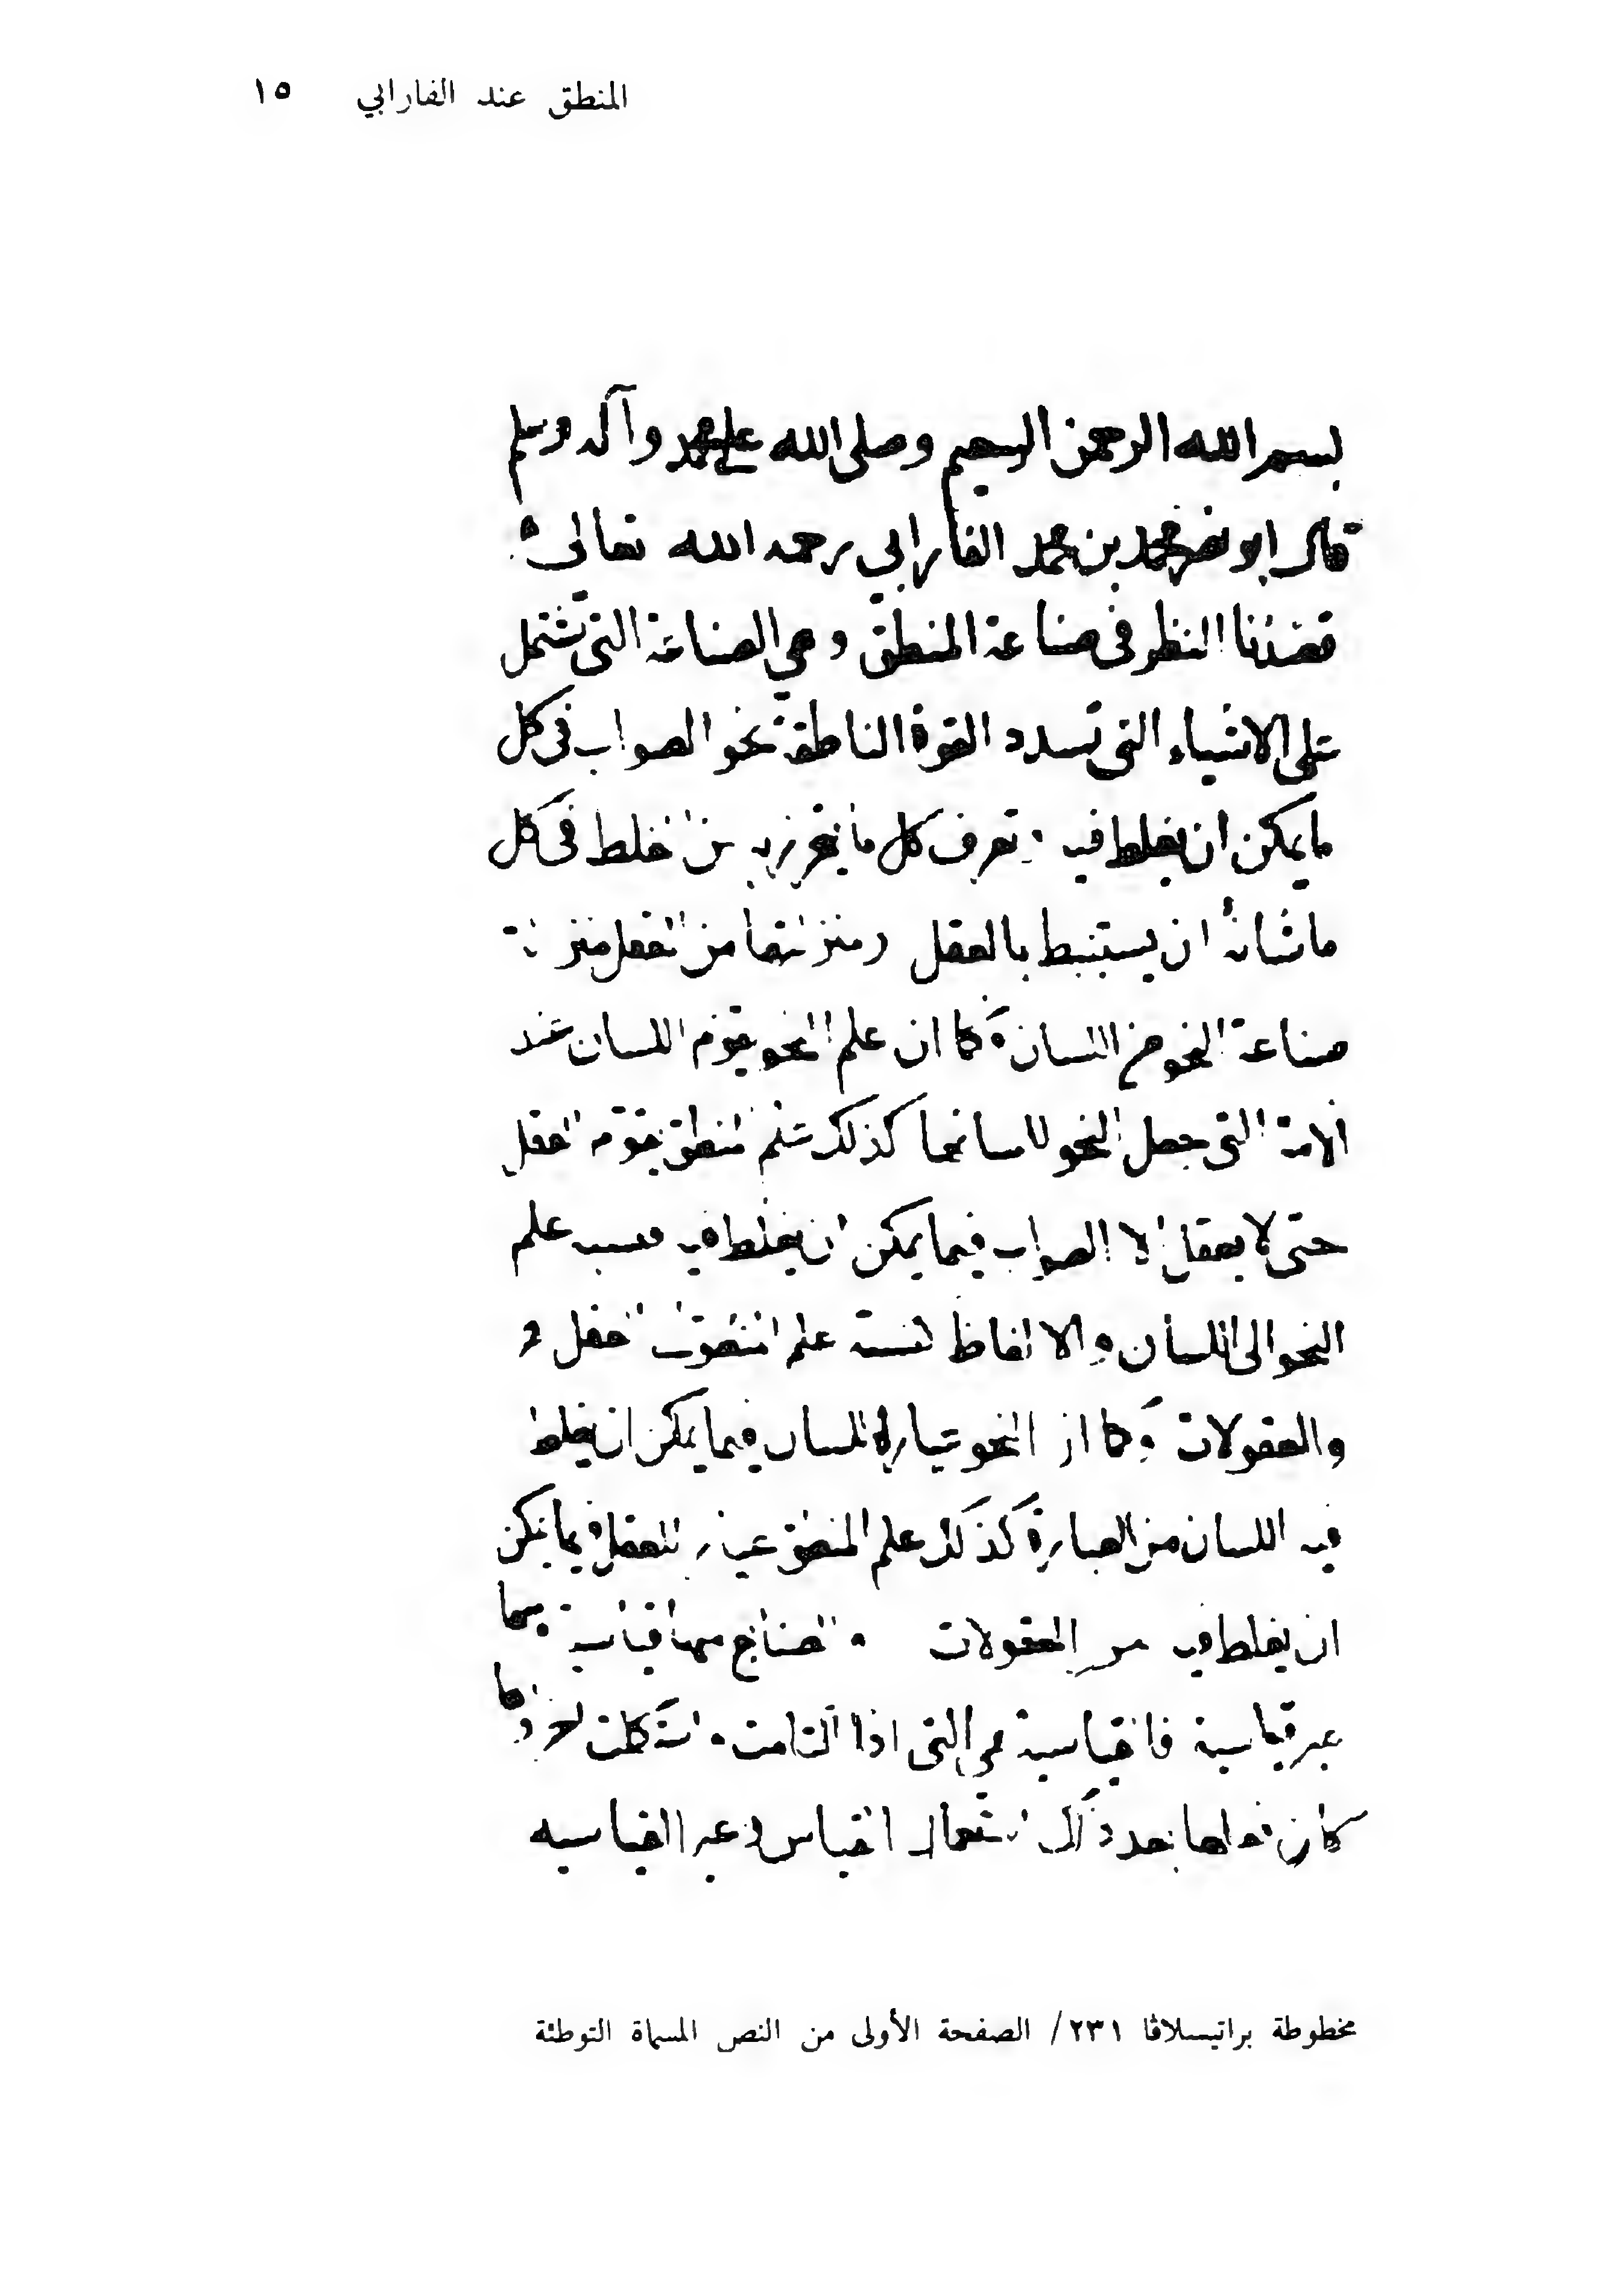 المنطق عند الفارابي ١٥
بسم الله الرحمن الرحيم وصلى الله على محمد وآله وسلم
قال ابو نصر محمد بن محمد الفارابي رحمه الله تعالى
قصدنا النظر في صناعة المنطق وهي الصناعة التي تشتمل
على الاشياء التي تسدد القوة الناطقة نحو الصواب في كل
ما يمكن ان يغلط فيه وتعرف كل ما يتحرز به من الغلط في كل
ما شانه ان يستنبط بالعقل ومنزلتها من العقل منزلة
صناعة النحو من اللسان وكما ان علم النحو يقوم اللسان عند
الامة التي جعل النحو للسانها كذلك علم المنطق يقوم العقل
حتى لا يعقل الا الصواب فيما يمكن ان يغلط فيه فنسبة علم
النحو الى اللسان والالفاظ كنسبة علم المنطق العقل و
والمعقولات وكما ان النحو عيار اللسان فيما يمكن ان يغلط
فيه اللسان من العبارة كذلك علم المنطق عيار للعقل فيما يمكن
ان يغلط فيه من المعقولات والصنائع منها قياسية ومنها
غير قياسية فالقياسية هي التي اذا التامت واستكملت اجزاؤها
كان فعلها بعد ذلك استعمال القياس وغير القياسية
مخطوطة براتيسلاڤا ٢٣١/ الصفحة الأولى من النص المسماة التوطئة